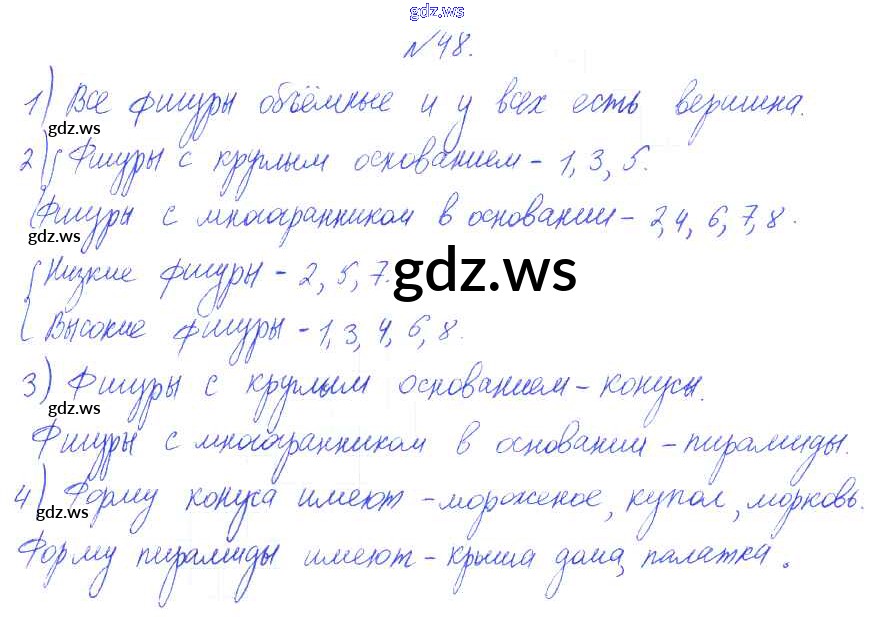 gdz.ws
№48.
1) Все фигуры объёмные и у всех есть вершина.
gdz.ws
2) Фигуры с круглым основанием - 1, 3, 5.
Фигуры с многогранником в основании - 2, 4, 6, 7, 8.
gdz.ws
Низкие фигуры - 2, 5, 7.
gdz.ws
Высокие фигуры - 1, 3, 4, 6, 8.
3) Фигуры с круглым основанием - конусы.
gdz.ws
Фигуры с многогранником в основании - пирамиды.
4) Форму конуса имеют - мороженое, купол, морковь.
gdz.ws
Форму пирамиды имеют - крыша дома, палатка.